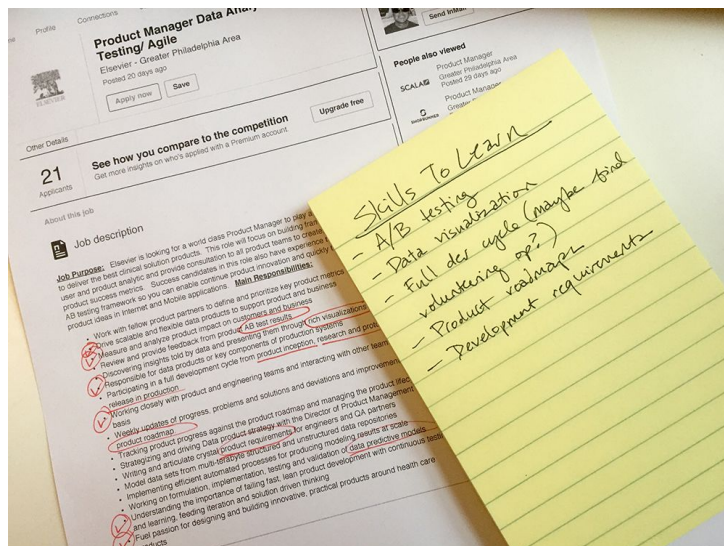 Profile
Connections
Product Manager Data Analy
Testing/ Agile
Elsevier - Greater Philadelphia Area
Posted 20 days ago
Apply now
Save
ELSEVIER
Send InMail
People also viewed
Product Manager
Greater Philadelphia Area
Posted 29 days ago
SCALA
Product Manager
Greater
Other Details
21
Applicants
See how you compare to the competition
Get more insights on who's applied with a Premium account.
Upgrade free
About this job
Job description
Job Purpose: Elsevier is looking for a world class Product Manager to play a
to deliver the best clinical solution products. This role will focus on building fra
user and product analytic and provide consultation to all product teams to create
product success metrics. Success candidates in this role also have experience
AB testing framework so you can enable continue product innovation and quickly
product ideas in Internet and Mobile applications. Main Responsibilities:
• Work with fellow product partners to define and prioritize key product metrics
• Drive scalable and flexible data products to support product and business
• Measure and analyze product impact on customers and business
• Review and provide feedback from product AB test results
• Discovering insights told by data and presenting them through rich visualizations
• Responsible for data products or key components of production systems
• Participating in a full development cycle from product inception, research and prot
release in production
• Working closely with product and engineering teams and interacting with other team
basis
• Weekly updates of progress, problems and solutions and deviations and improvemen
product roadmap
• Tracking progress against the product roadmap and managing the product lifec
• Strategizing and driving Data product strategy with the Director of Product Management
• Writing and articulate crystal product requirements for engineers and QA partners
• Model data sets from multi-terabyte structured and unstructured data repositories
• Implementing efficient automated processes for producing modeling results at scale
• Working on formulation, implementation, testing and validation of data predictive models
• Understanding the importance of failing fast, lean product development with continuous testi
and learning, feeding iteration and solution driven thinking
• Fuel passion for designing and building innovative, practical products around health care
products
Skills To Learn
- A/B testing
- Data visualization
- Full dev cycle (maybe find
volunteering op?)
- Product roadmaps
- Development requirements